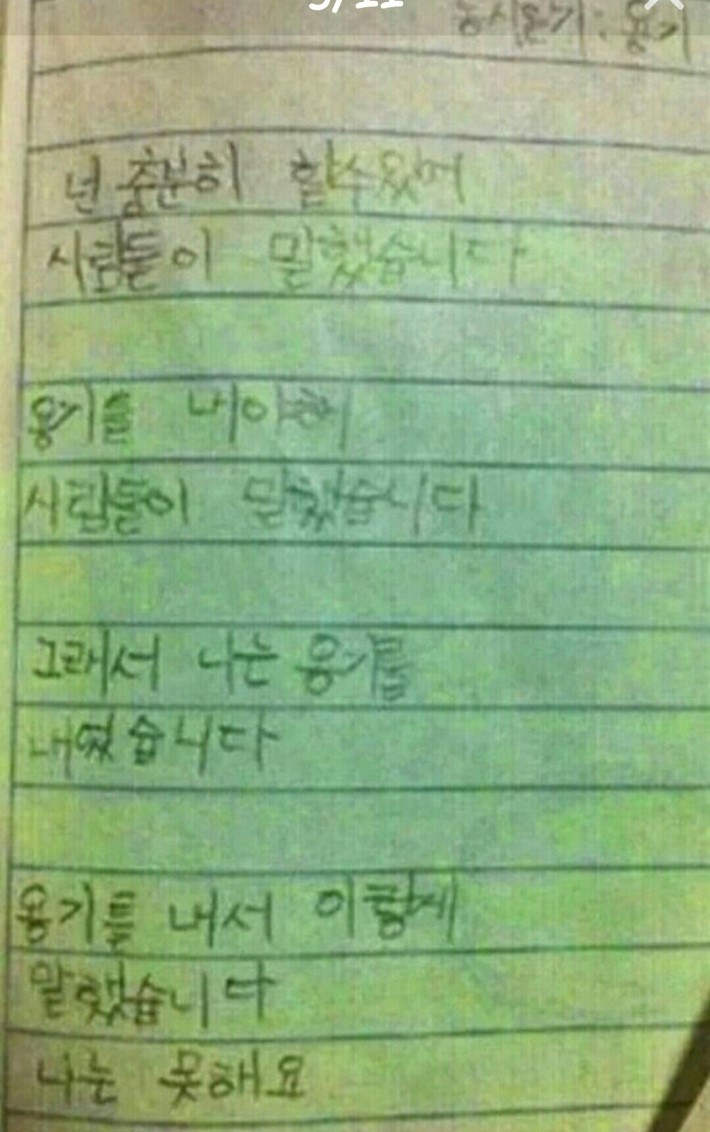 5/11
동시쓰기: 용기
넌 충분히 할수있어
사람들이 말했습니다
용기를 내야해
사람들이 말했습니다
그래서 나는 용기를
내었습니다
용기를 내서 이렇게
말했습니다
나는 못해요